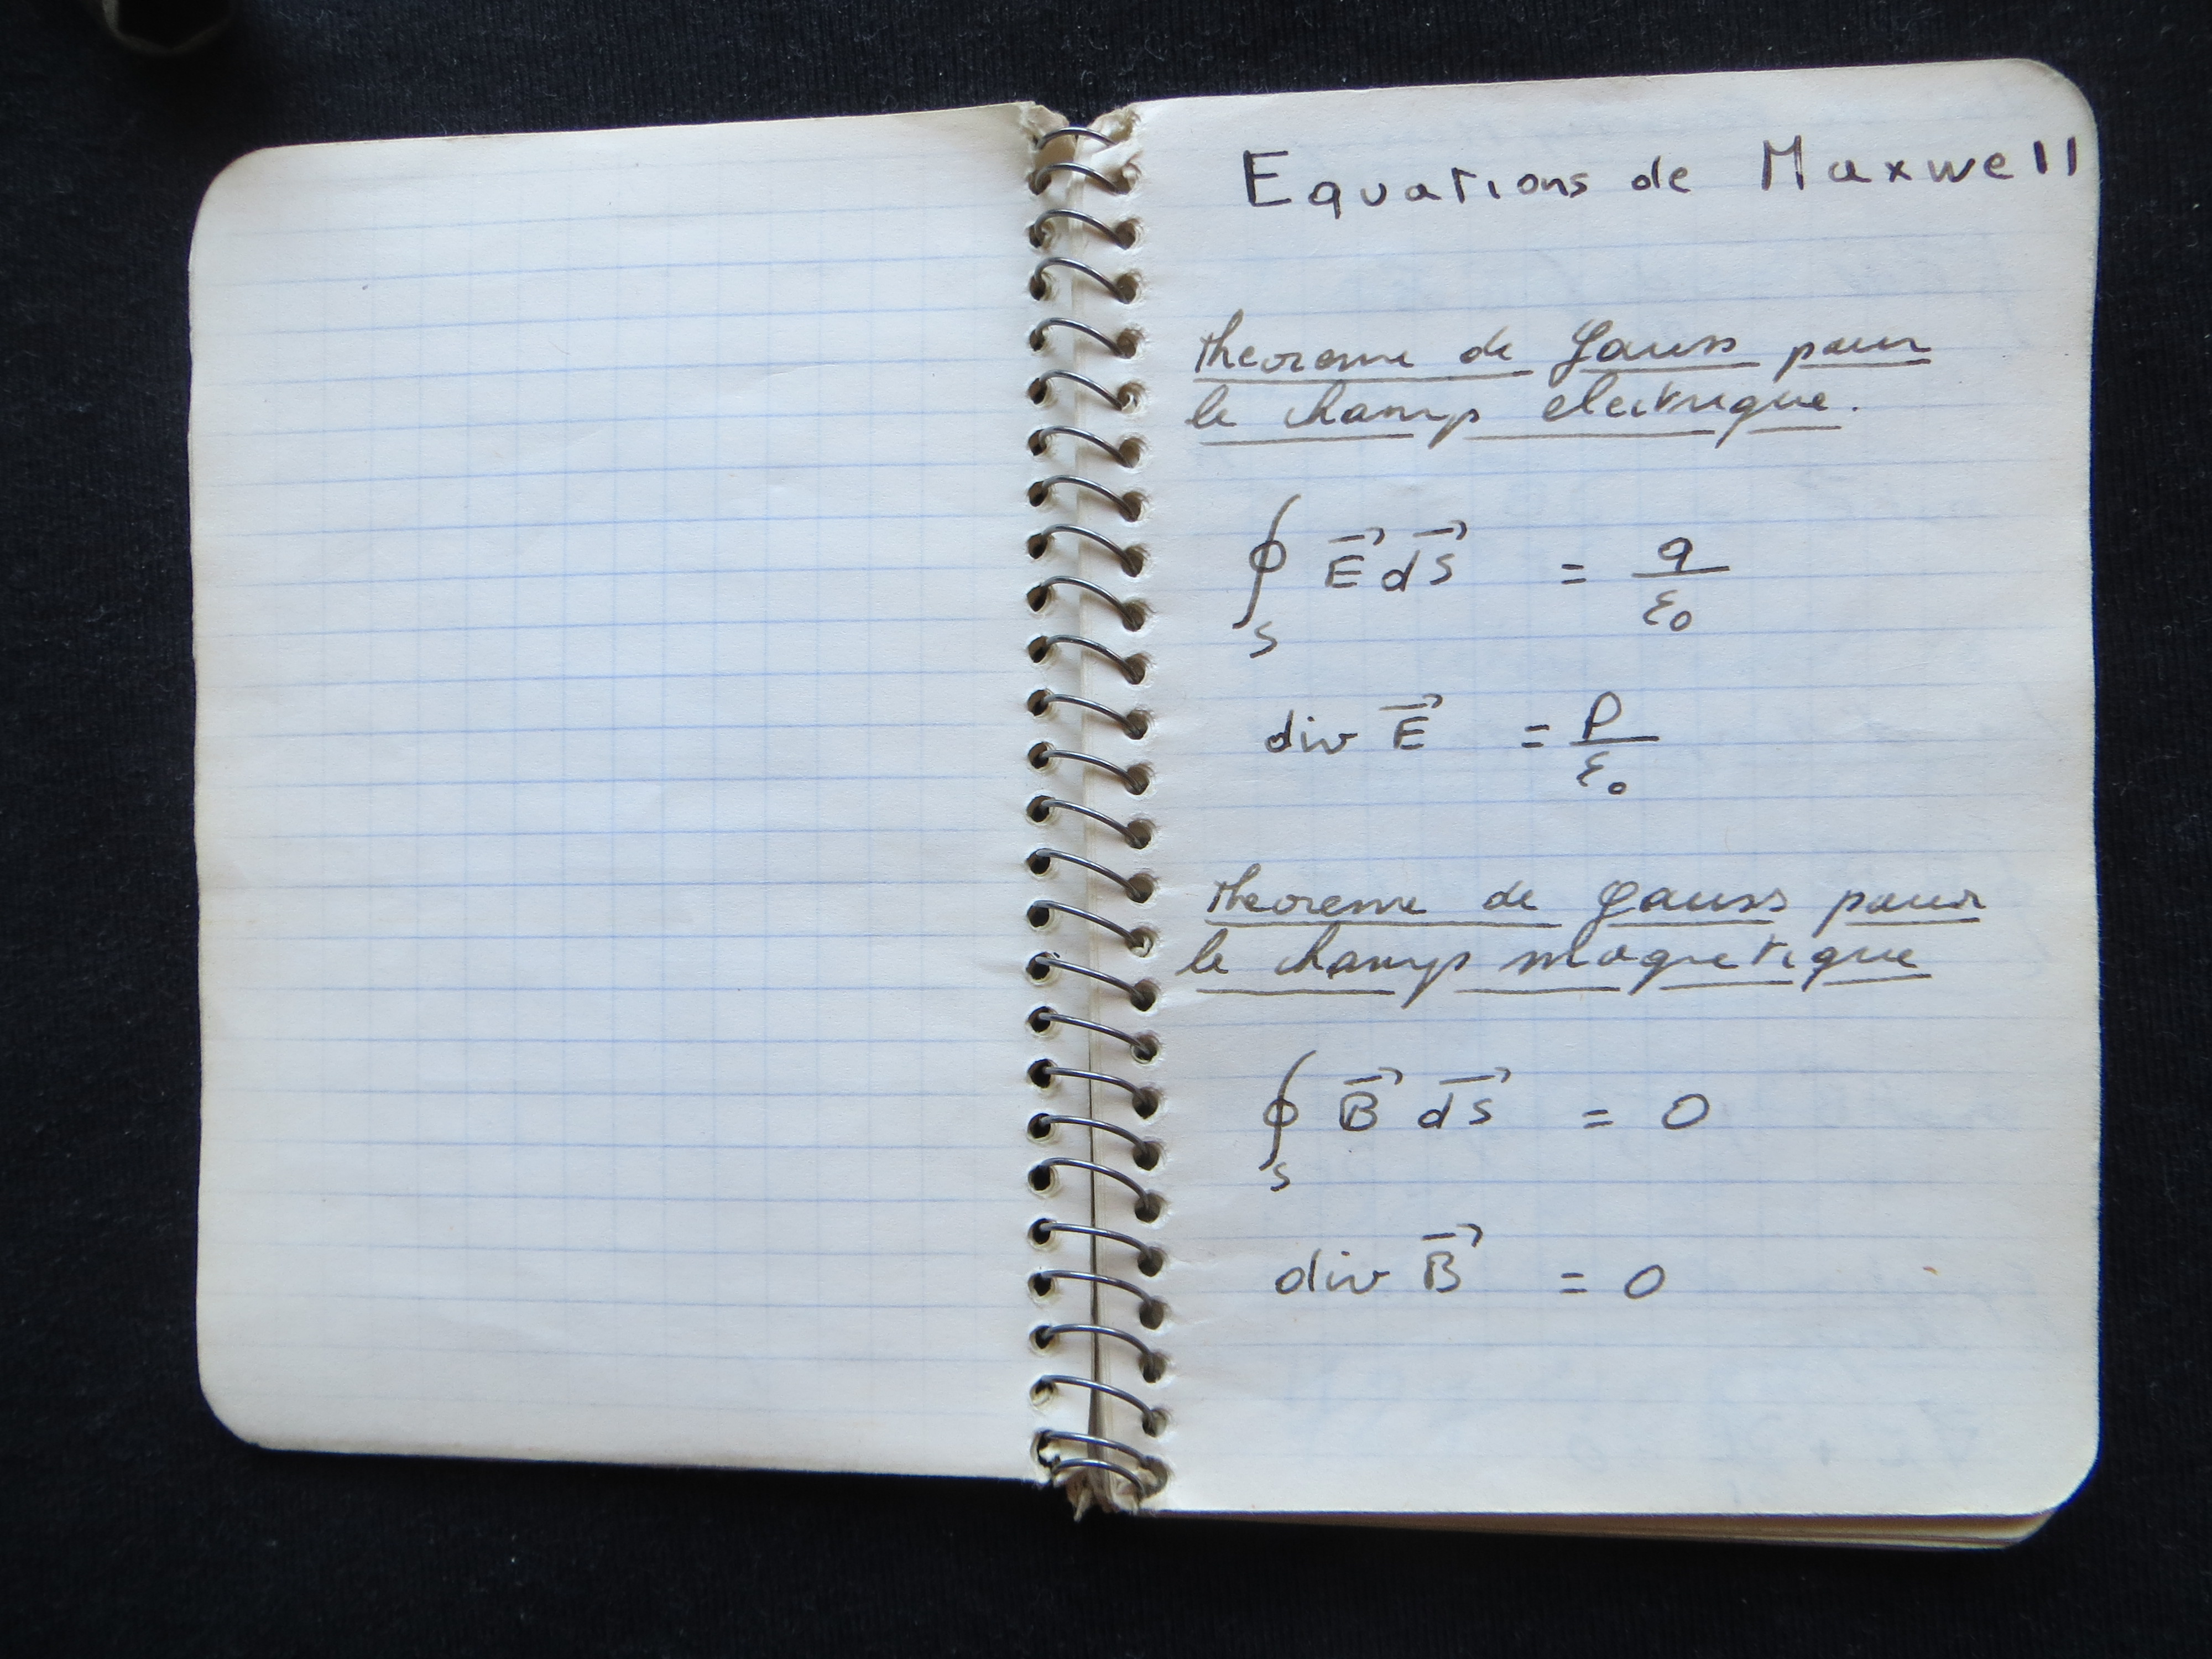 Equations de Maxwell
theoreme de Gauss pour
le champ electrique.
∮_S E⃗ dS⃗ = q/ε₀
div E⃗ = ρ/ε₀
theoreme de Gauss pour
le champ magnetique
∮_S B⃗ dS⃗ = 0
div B⃗ = 0